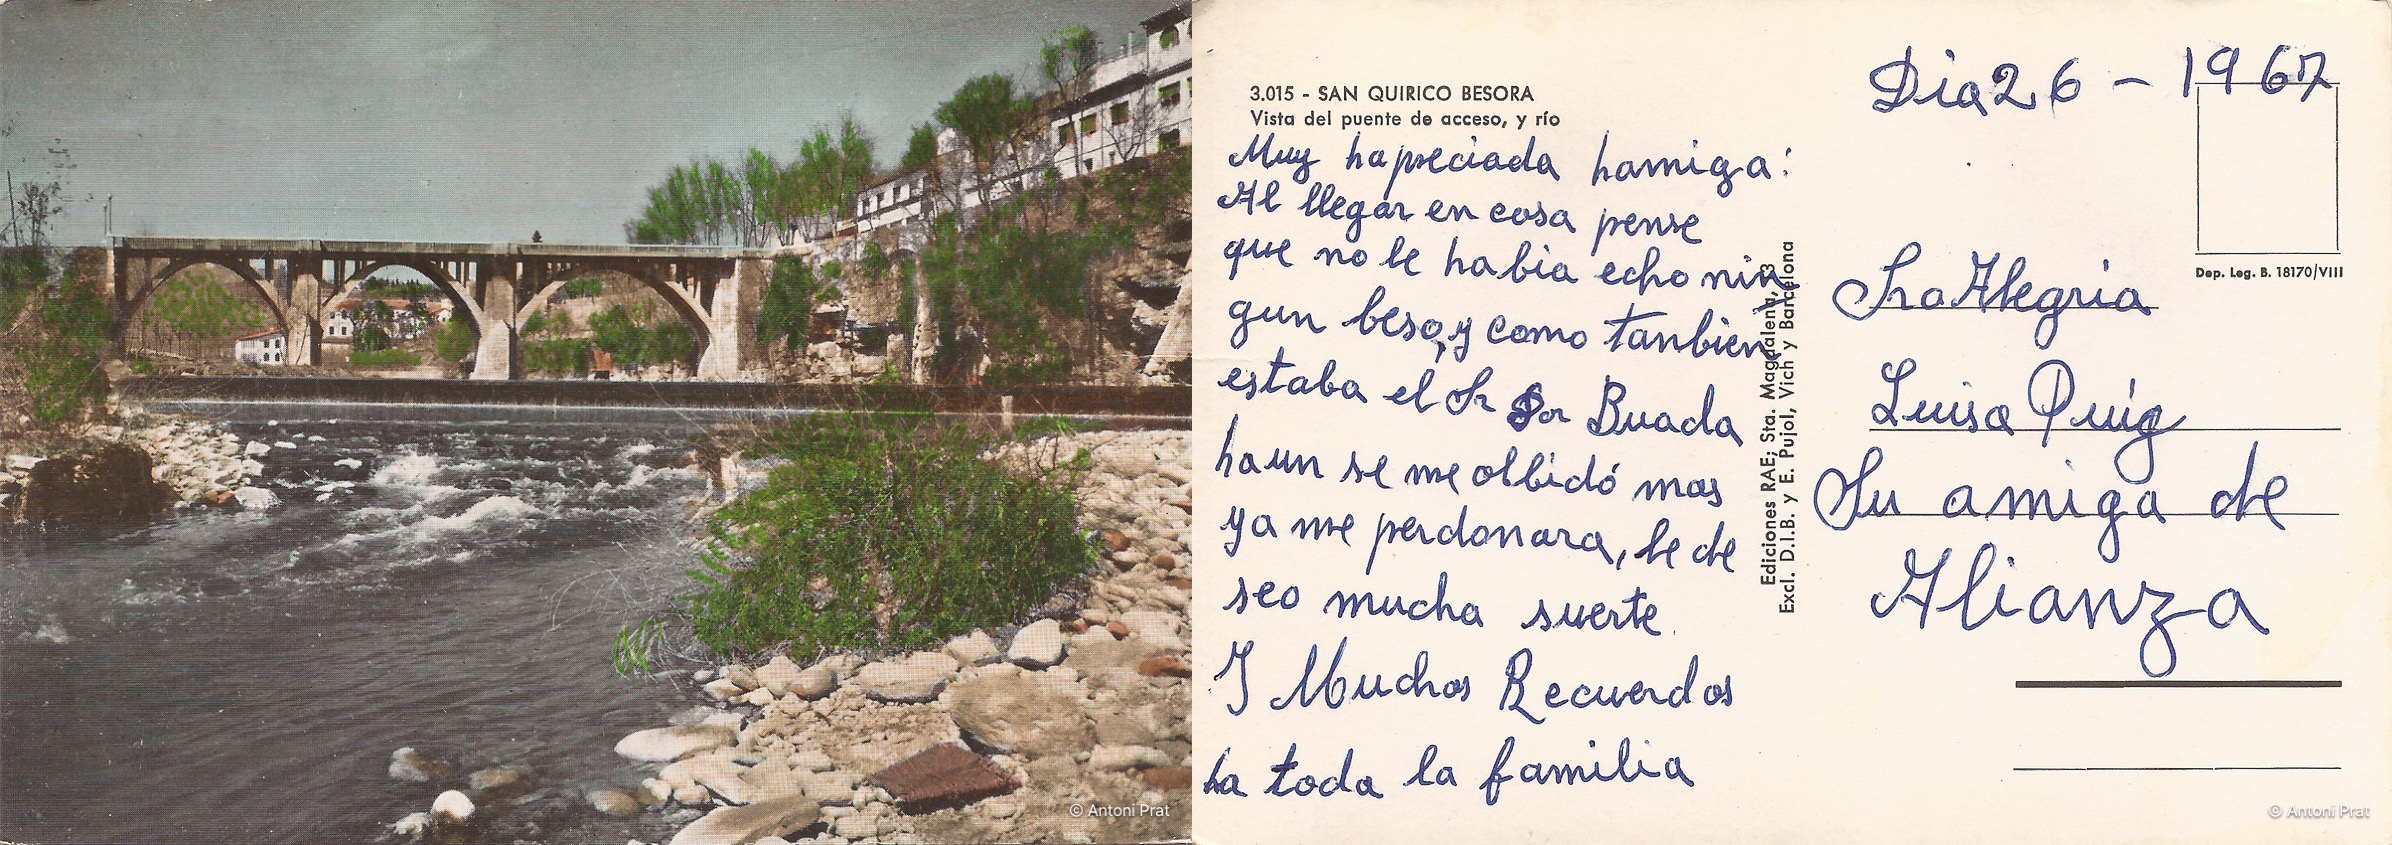 3.015 - SAN QUIRICO BESORA
Vista del puente de acceso, y río
Muy hapreciada hamiga:
Al llegar en casa pense
que no le habia echo nin
gun beso, y como tanbien
estaba el Sr Buada
haun se me olbidó mas
ya me perdonara, le de
seo mucha suerte
Y Muchos Recuerdos
ha toda la familia
Ediciones RAE; Sta. Magdalena, 3
Excl. D.I.B. y E. Pujol, Vich y Barcelona
Dia 26 - 1967
Dep. Leg. B. 18170/VIII
Sra Alegria
Luisa Puig
Su amiga de
Alianza
© Antoni Prat
© Antoni Prat